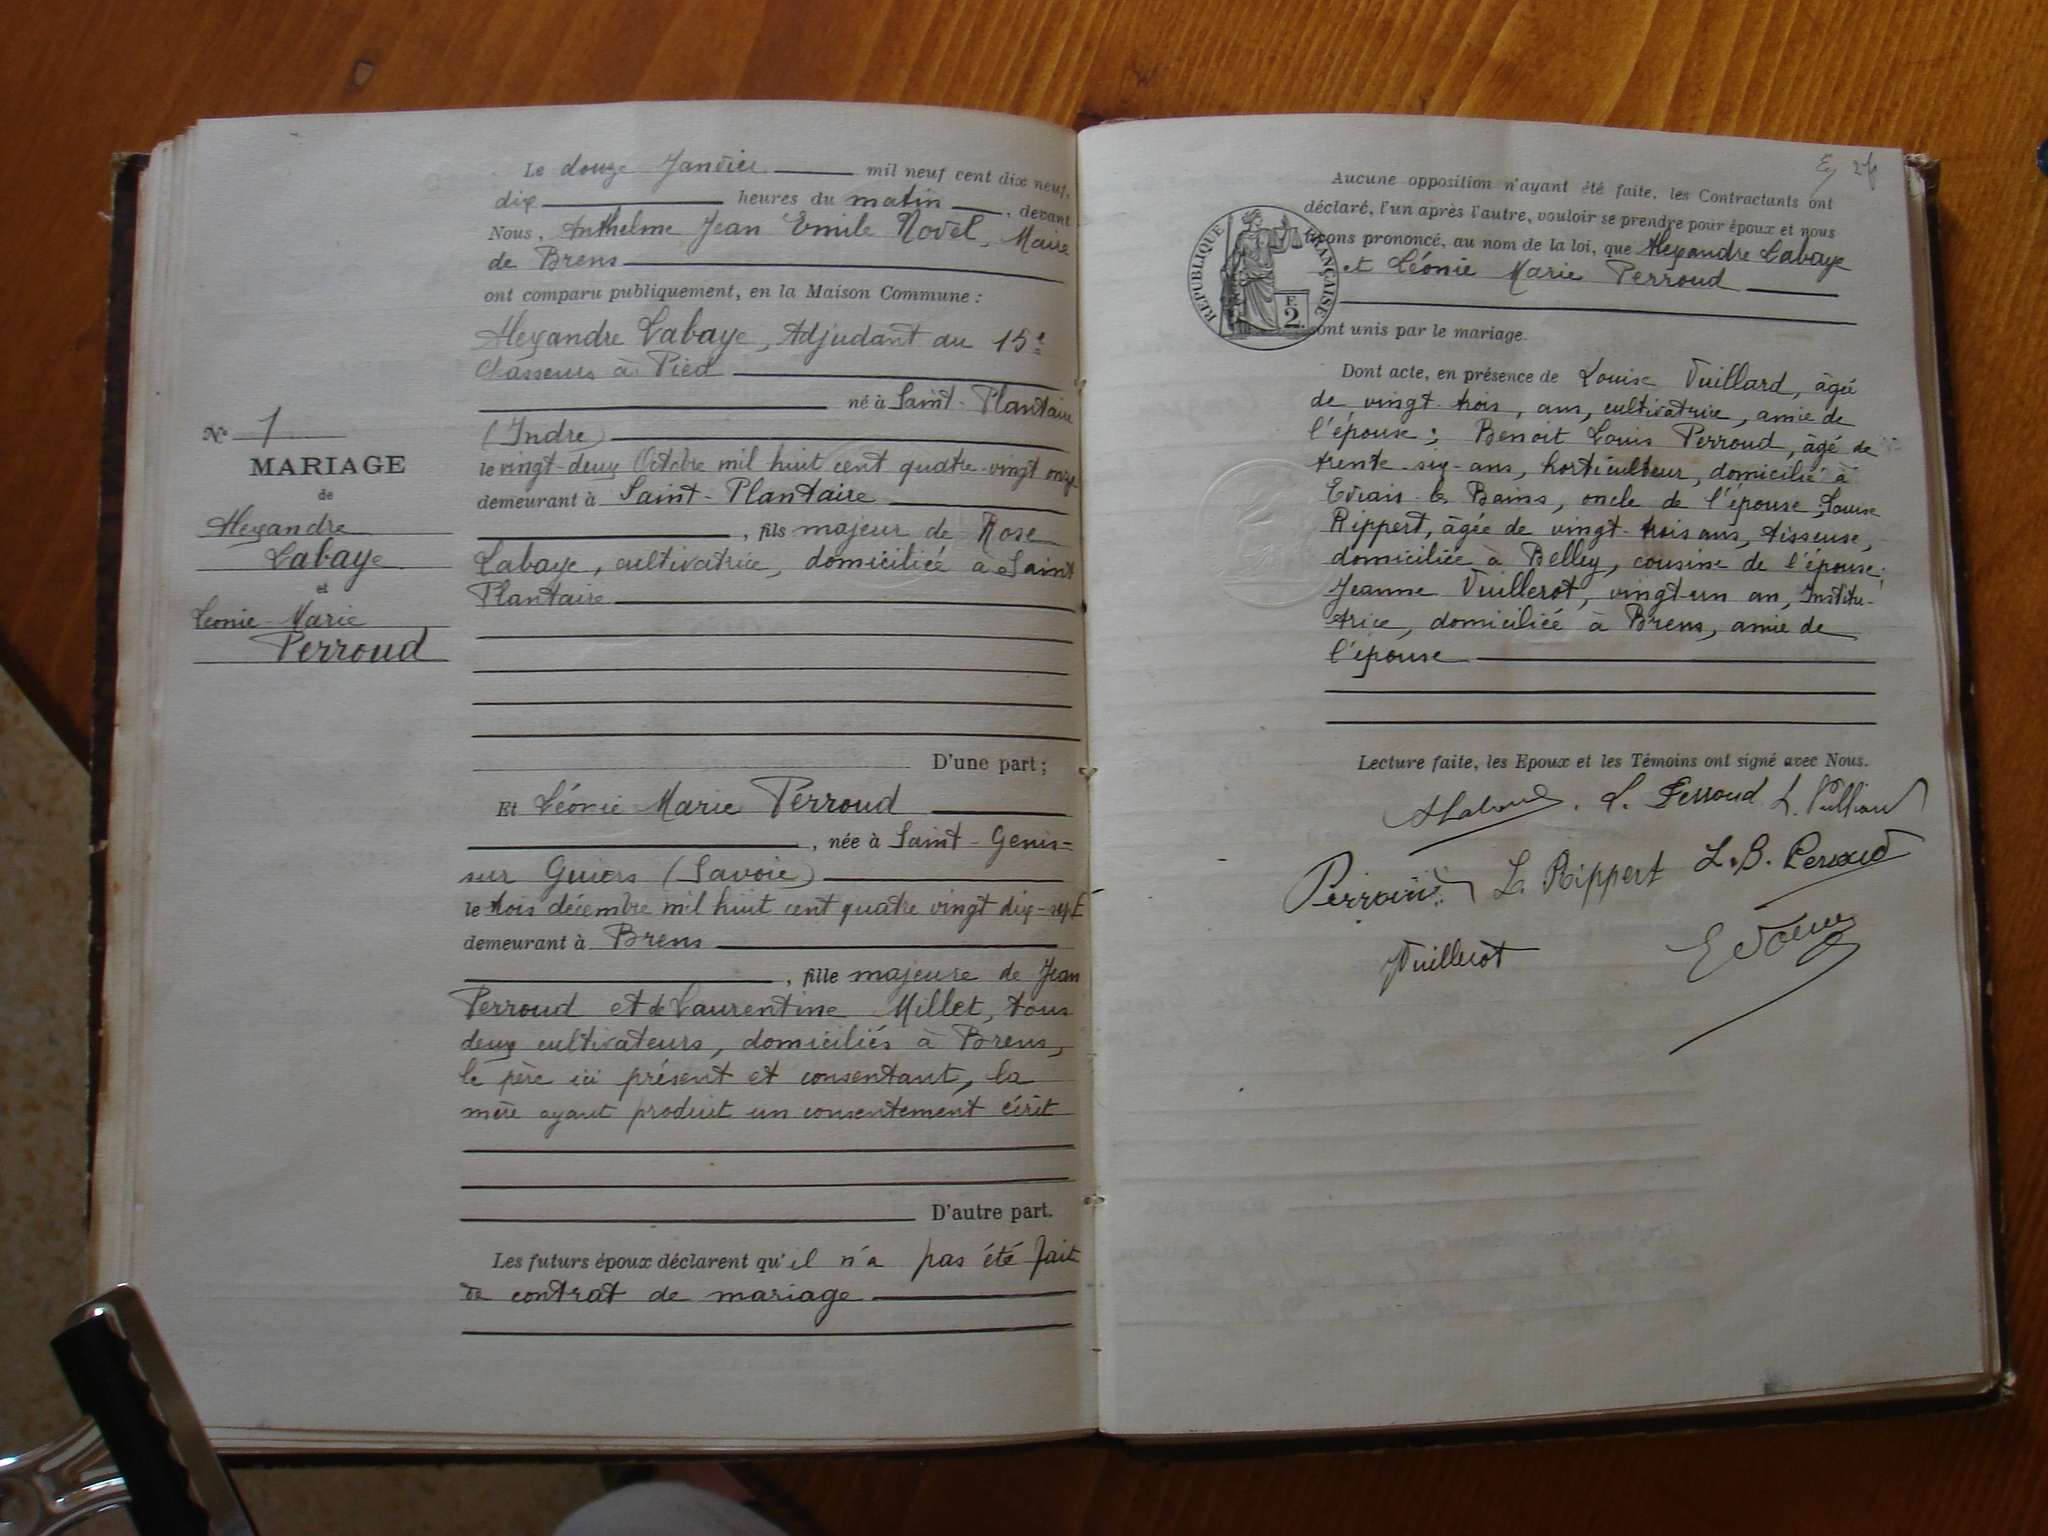 Le douze Janvier mil neuf cent dix neuf,
dix heures du matin, devant
Nous, Anthelme Jean Emile Novel, Maire
de Brens
ont comparu publiquement, en la Maison Commune :
Alexandre Labaye, Adjudant au 15e
Chasseurs à Pied
né à Saint-Plantaire
(Indre)
le vingt-deux Octobre mil huit cent quatre-vingt onze
demeurant à Saint-Plantaire
, fils majeur de Rose
Labaye, cultivatrice, domiciliée à Saint
Plantaire
D'une part ;
Et Léonie Marie Perroud
, née à Saint-Genis-
sur Guiers (Savoie)
le trois décembre mil huit cent quatre vingt dix-sept
demeurant à Brens
, fille majeure de Jean
Perroud et de Laurentine Millet, tous
deux cultivateurs, domiciliés à Brens,
le père ici présent et consentant, la
mère ayant produit un consentement écrit
D'autre part.
Les futurs époux déclarent qu'il n'a pas été fait
de contrat de mariage
No 1
MARIAGE
de
Alexandre
Labaye
et
Léonie-Marie
Perroud
Aucune opposition n'ayant été faite, les Contractants ont
déclaré, l'un après l'autre, vouloir se prendre pour époux et nous
avons prononcé, au nom de la loi, que Alexandre Labaye
et Léonie Marie Perroud
sont unis par le mariage.
RÉPUBLIQUE FRANÇAISE
F.
2.
Dont acte, en présence de Louise Vuillard, âgée
de vingt-trois, ans, cultivatrice, amie de
l'épouse ; Benoit Louis Perroud, âgé de
trente-six-ans, horticulteur, domicilié à
les Bains, oncle de l'épouse ; Louise
Rippert, âgée de vingt-trois ans, tisseuse,
domiciliée à Belley, cousine de l'épouse ;
Jeanne Vuillerot, vingt-un an, Institu-
trice, domiciliée à Brens, amie de
l'épouse
Lecture faite, les Epoux et les Témoins ont signé avec Nous.
L. Perroud
L. Rippert L. B. Perroud
JVuillerot